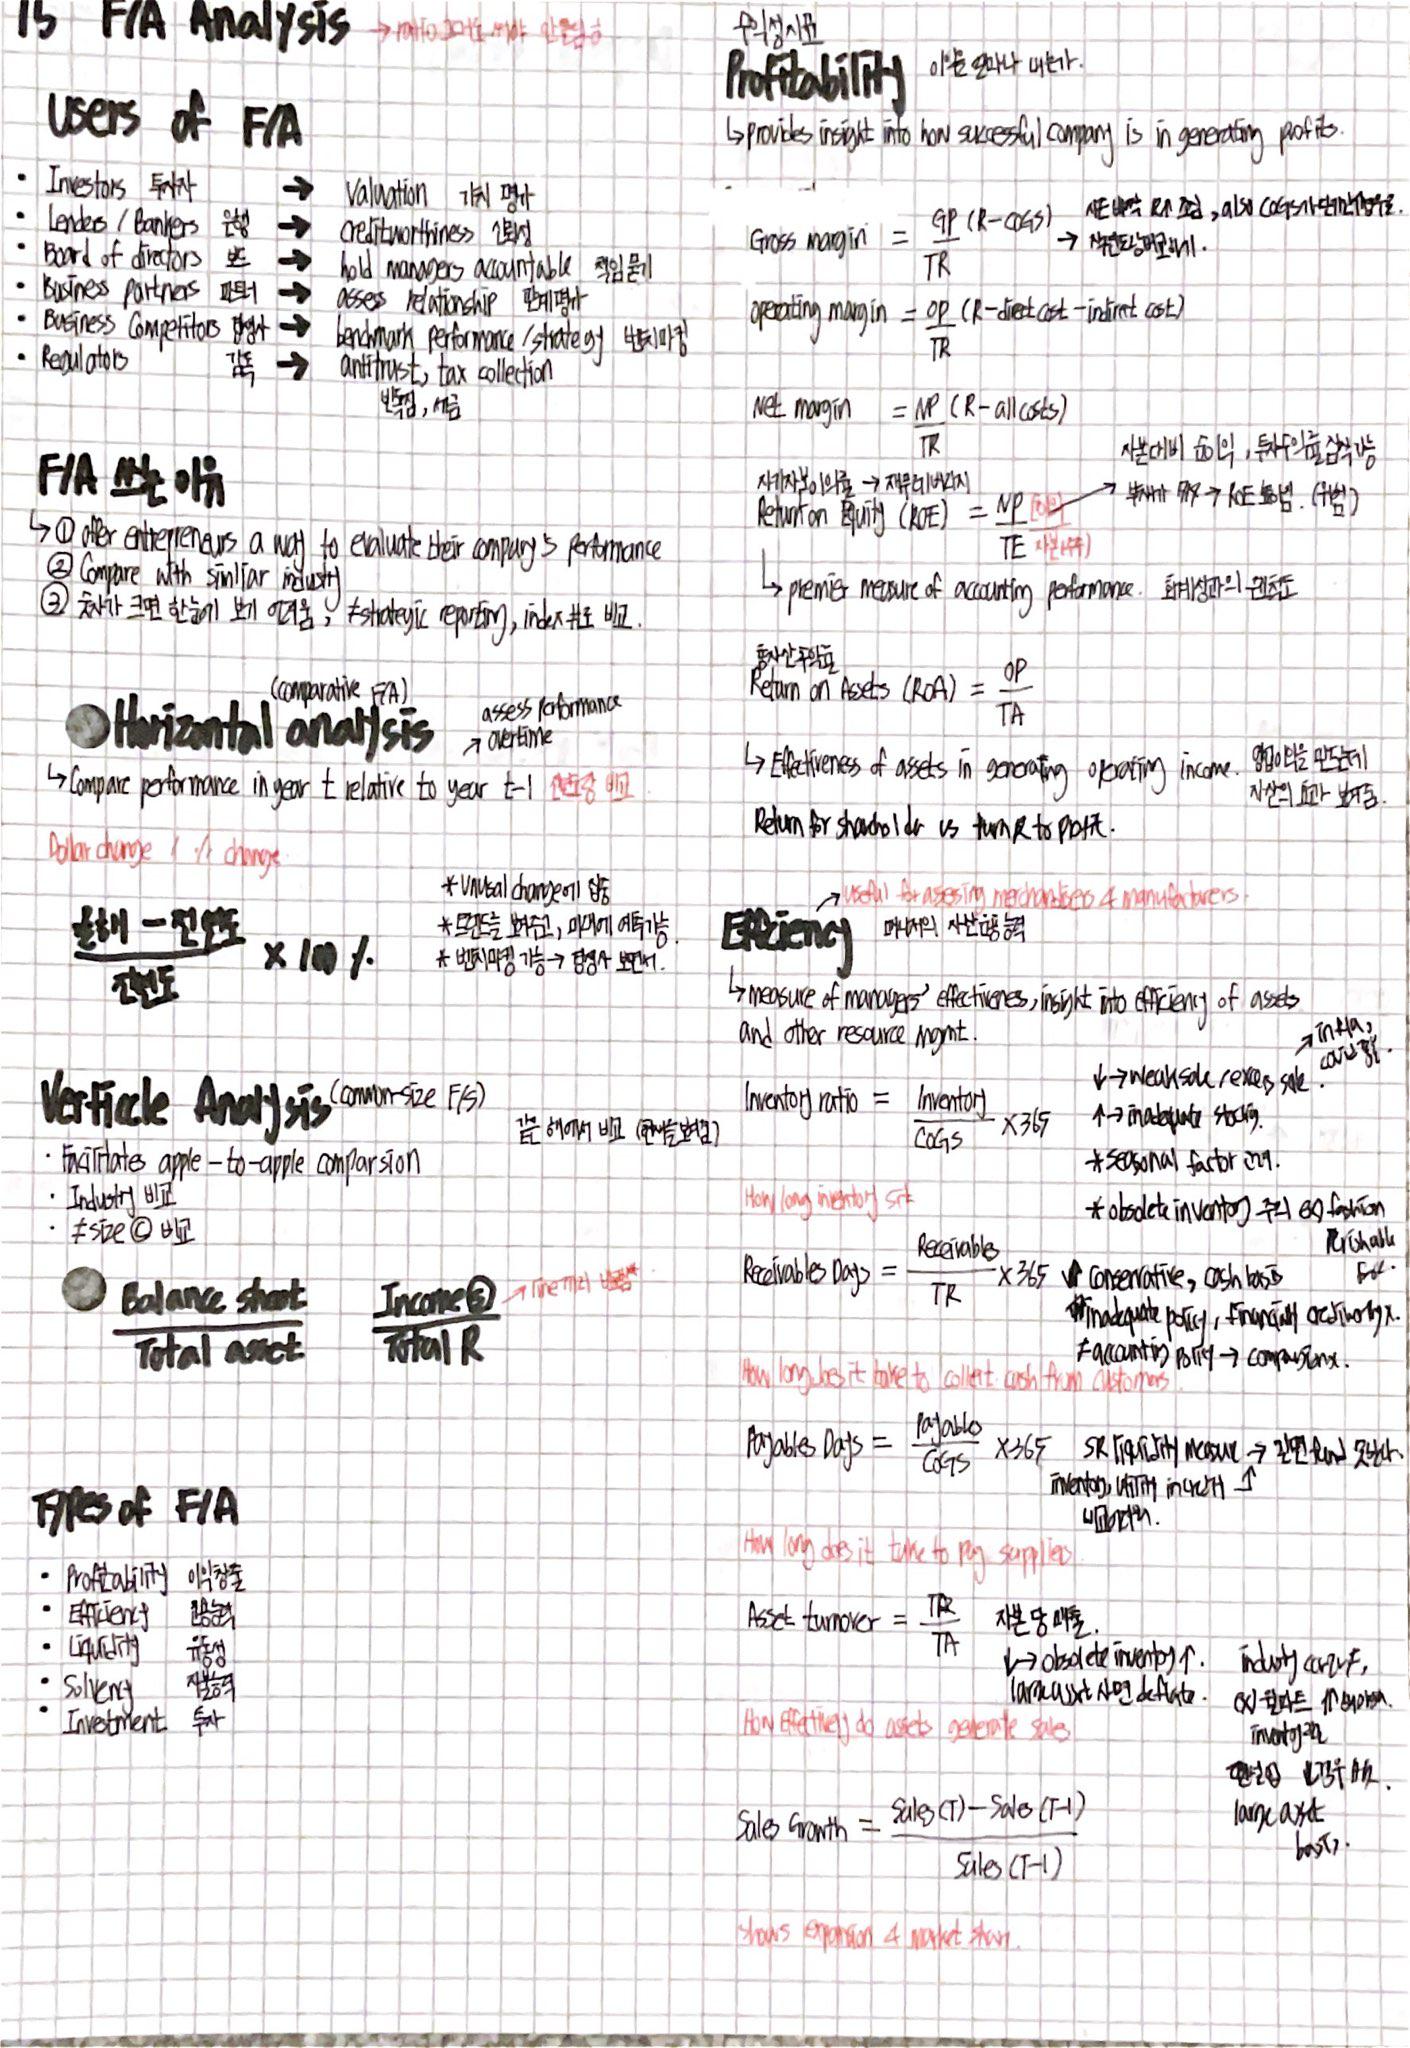 15 F/A Analysis
Users of F/A
• Investors 투자자 → valuation 가치 평가
• Lenders / Bankers 은행 → creditworthiness 신뢰성
• Board of directors 보드 → hold managers accountable 책임 묻기
• Business partners 파트너 → assess relationship 관계 평가
• Business Competitors 경쟁사 → benchmark performance / strategy 벤치마킹
• Regulators 감독 → antitrust, tax collection
반독점, 세금
F/A 쓰는 이유
↳ ① offer entrepreneurs a way to evaluate their company's performance
② Compare with similar industry
③ 숫자가 크면 한눈에 보기 어려움, ≠ strategic reporting, index #로 비교.
(comparative F/A)
Horizontal analysis → assess performance
overtime
↳ Compare performance in year t relative to year t-1 전년도랑 비교
Dollar change / % change
올해 - 전년도
전년도
× 100 %
* unusal change에 집중
* 트렌드를 보여주고, 미래에 예측가능
* 벤치마킹 가능 → 경쟁사 보면서.
Verticle Analysis (common-size F/S)
같은 해에서 비교
• Facilitates apple-to-apple comparsion
• Industry 비교
• ≠ size Ⓒ 비교
Balance sheet
Total asset
Income Ⓢ
Total R
→ line끼리
Types of F/A
• Profitability 이익창출
• Efficiency 운용능력
• Liquidity 유동성
• Solvency 지불능력
• Investment 투자
수익성지표
Profitability 이익을 얼마나 내는가.
↳ provides insight into how successful company is in generating profits.
Gross margin = GP (R-COGS)
TR
operating margin = OP (R-direct cost-indirect cost)
TR
Net margin = NP (R-all costs)
TR
자기자본이익률 → 재무레버리지
Return on Equity (ROE) = NP
TE
→ 자본대비 순이익,
부채가
↳ premier measure of accounting performance. 회계성과의
총자산수익률
Return on Assets (ROA) = OP
TA
↳ Effectiveness of assets in generating operating income. 영업이익을 만드는데
자산의 효과 보여줌.
Return for shareholder vs turn R to profit.
→ useful for assessing merchandisers & manufacturers.
Efficiency 매니저의 자산운용능력
↳ measure of managers' effectiveness, insight into efficiency of assets
and other resource mgmt.
Inventory ratio = Inventory
COGS
×365
↓ → weak sale / excess sale.
↑ → inadequate stocking.
* seasonal factor 고려.
* obsolete inventory 주의 ex) fashion
Perishable
How long inventory
Receivables Days = Receivables
TR
×365
conservative, cash basis
inadequate policy, financial creditworthy x.
≠ accounting policy → comparsion x.
How long does it take to collect cash from customers.
Payables Days = Payables
COGS
×365
SR liquidity measure →
How long does it take to pay suppliers
Asset turnover = TR
TA
자본 당 매출.
↓ → obsolete inventory ↑.
large asset 사면 deflate.
How Effectively do assets generate sales
large asset
basis.
Sales Growth = Sales (T) - Sales (T-1)
Sales (T-1)
shows expansion & market share.